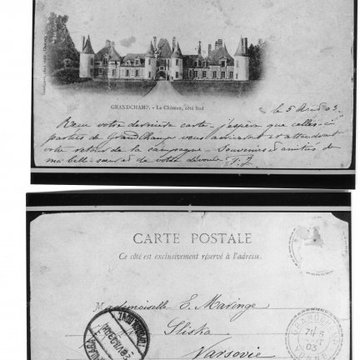 GRANDCHAMP. - Le Château, côté Sud
le 5 Août 03.
Reçu votre dernière carte, j'espère que celles-ci
parties de Grandchamp vous arrivent et attendent
votre retour de la campagne - Souvenirs d'amitiés de
ma belle-sœur et de votre dévoué F. J.
CARTE POSTALE
Ce côté est exclusivement réservé à l'adresse.
Mademoiselle E. Maringe
Sliska
Varsovie
03